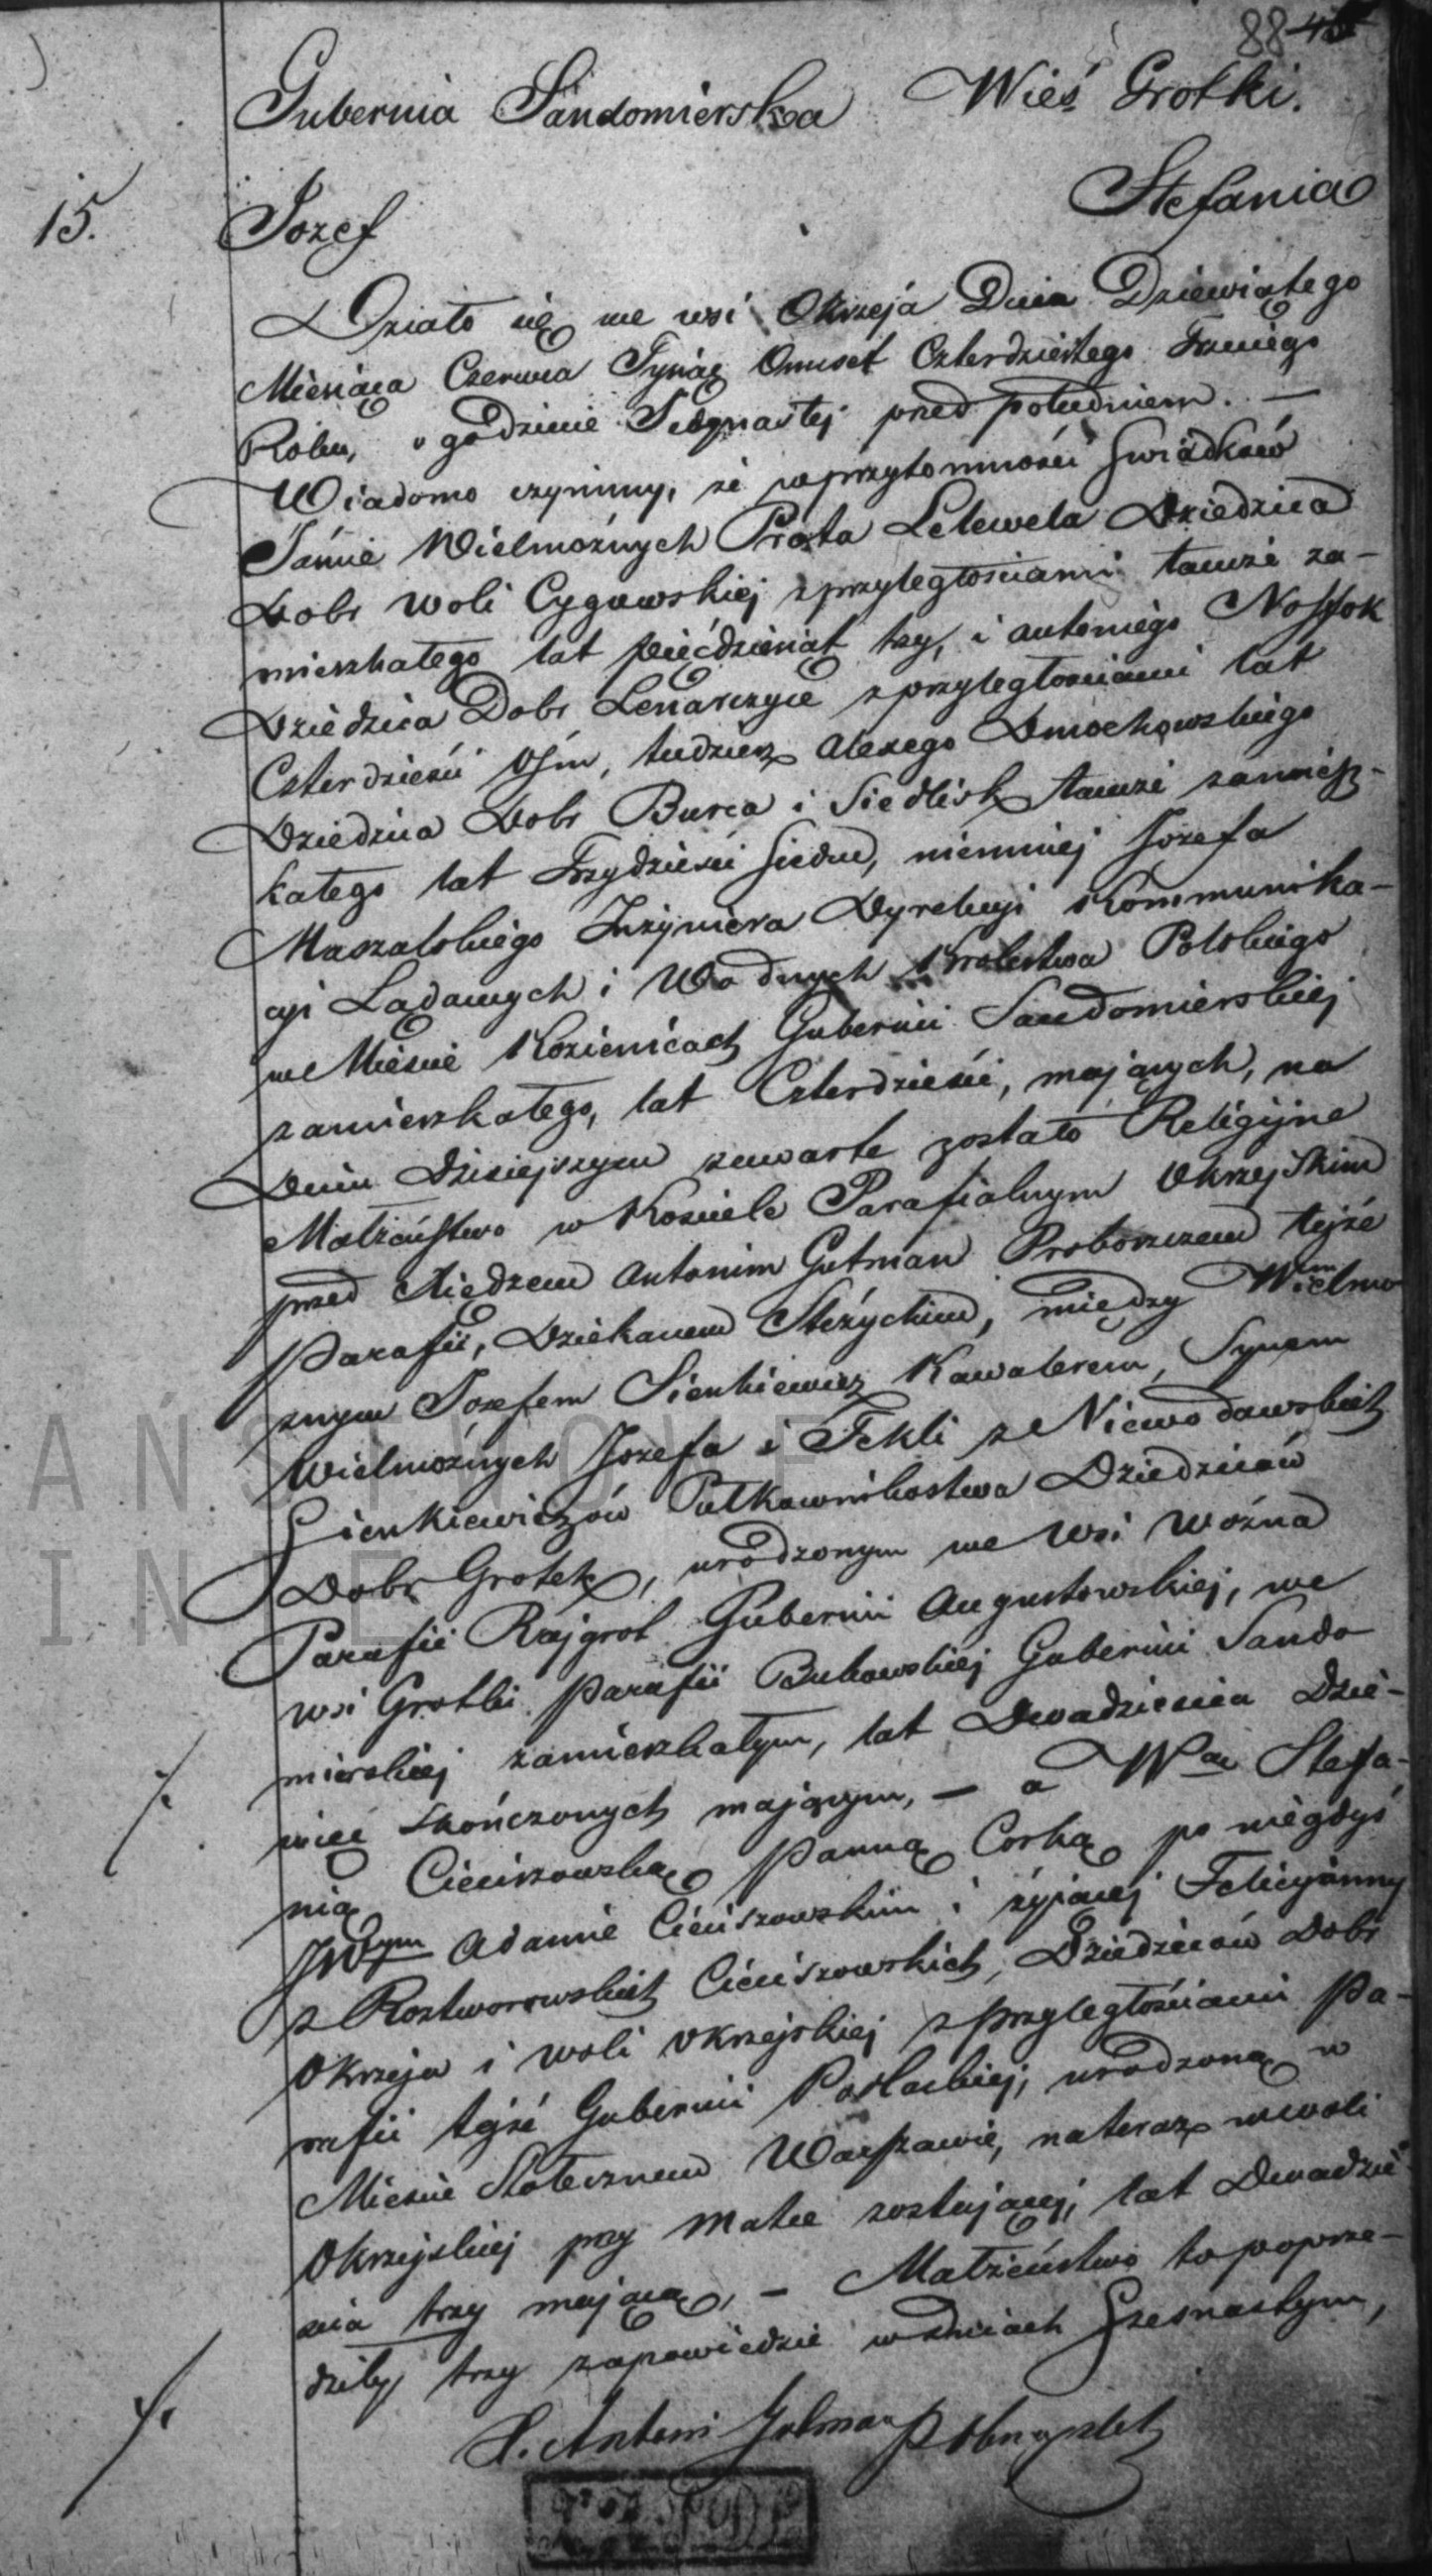 88
Gubernia Sandomierska Wieś Grotki.
15. Jozef Stefania
Działo się we wsi Okrzeja Dnia Dziewiątego
Miesiąca Czerwca Tysiąc Ośmset Czterdziestego Trzeciego
Roku, o godzinie Jedynastej przed południem. —
Wiadomo czyniemy, że w przytomności Swiadków
Jaśnie Wielmożnych Prota Lelewela Dziedzica
Dobr Woli Cygowskiej z przyległościami tamże za-
mieszkałego lat pięćdziesiąt trzy, i Antoniego Nossok
Dziedzica Dobr Lenarczyce z przyległosciami lat
Czterdzieści Ośm, tudzież Alexego Dmochowskiego
Dziedzica Dobr Burca i Siedlisk tamże zamiesz-
kałego lat Trzydzieści siedm, niemniej Jozefa
Maszalskiego Inżyniera Dyrekcyi Kommunika-
cyi Lądowych i Wodnych Krolestwa Polskiego
we Mieście Kozienicach Gubernii Sandomierskiej
zamieszkałego, lat Czterdzieści, mających, na
Dniu Dzisiejszym zawarte zostało Religijne
Małżeństwo w Kosciele Parafialnym Okrzejskim
przed Xiedzem Antonim Gutman Proboszczem tejże
Parafii, Dziekanem Stężyckim, między Wielmo
żnym Jozefem Sienkiewicz Kawalerem, Synem
Wielmożnych Jozefa i Tekli z Niewodowskich
Sienkiewiczów Pułkownikostwa Dziedziców
Dobr Grotek, urodzonym we Wsi Woźna
Parafii Rajgrod Gubernii Augustowskiej, we
wsi Grotki Parafii Bukowskiej Gubernii Sando
mierskiej zamieszkałym, lat Dwadziescia Dzie-
więć skończonych mającym, — a Wną Stefa-
nią Cieciszowską Panną Corką po niegdyś
JWym Adamie Cieciszowskim i żyjącej Felicyanny
z Rostworowskich Cieciszowskich, Dziedziców Dobr
Okrzeja i Woli Okrzejskiej z przyległościami Pa-
rafii tejże Gubernii Podlaskiej, urodzoną w
Mieście Stołecznem Warszawie, na teraz w Woli
Okrzejskiej przy Matce zostającej, lat Dwadzie
scia trzy mającą, — Małżeństwo to poprze-
dziły trzy zapowiedzie w dniach Szesnastym,
X. Antoni Gutman P